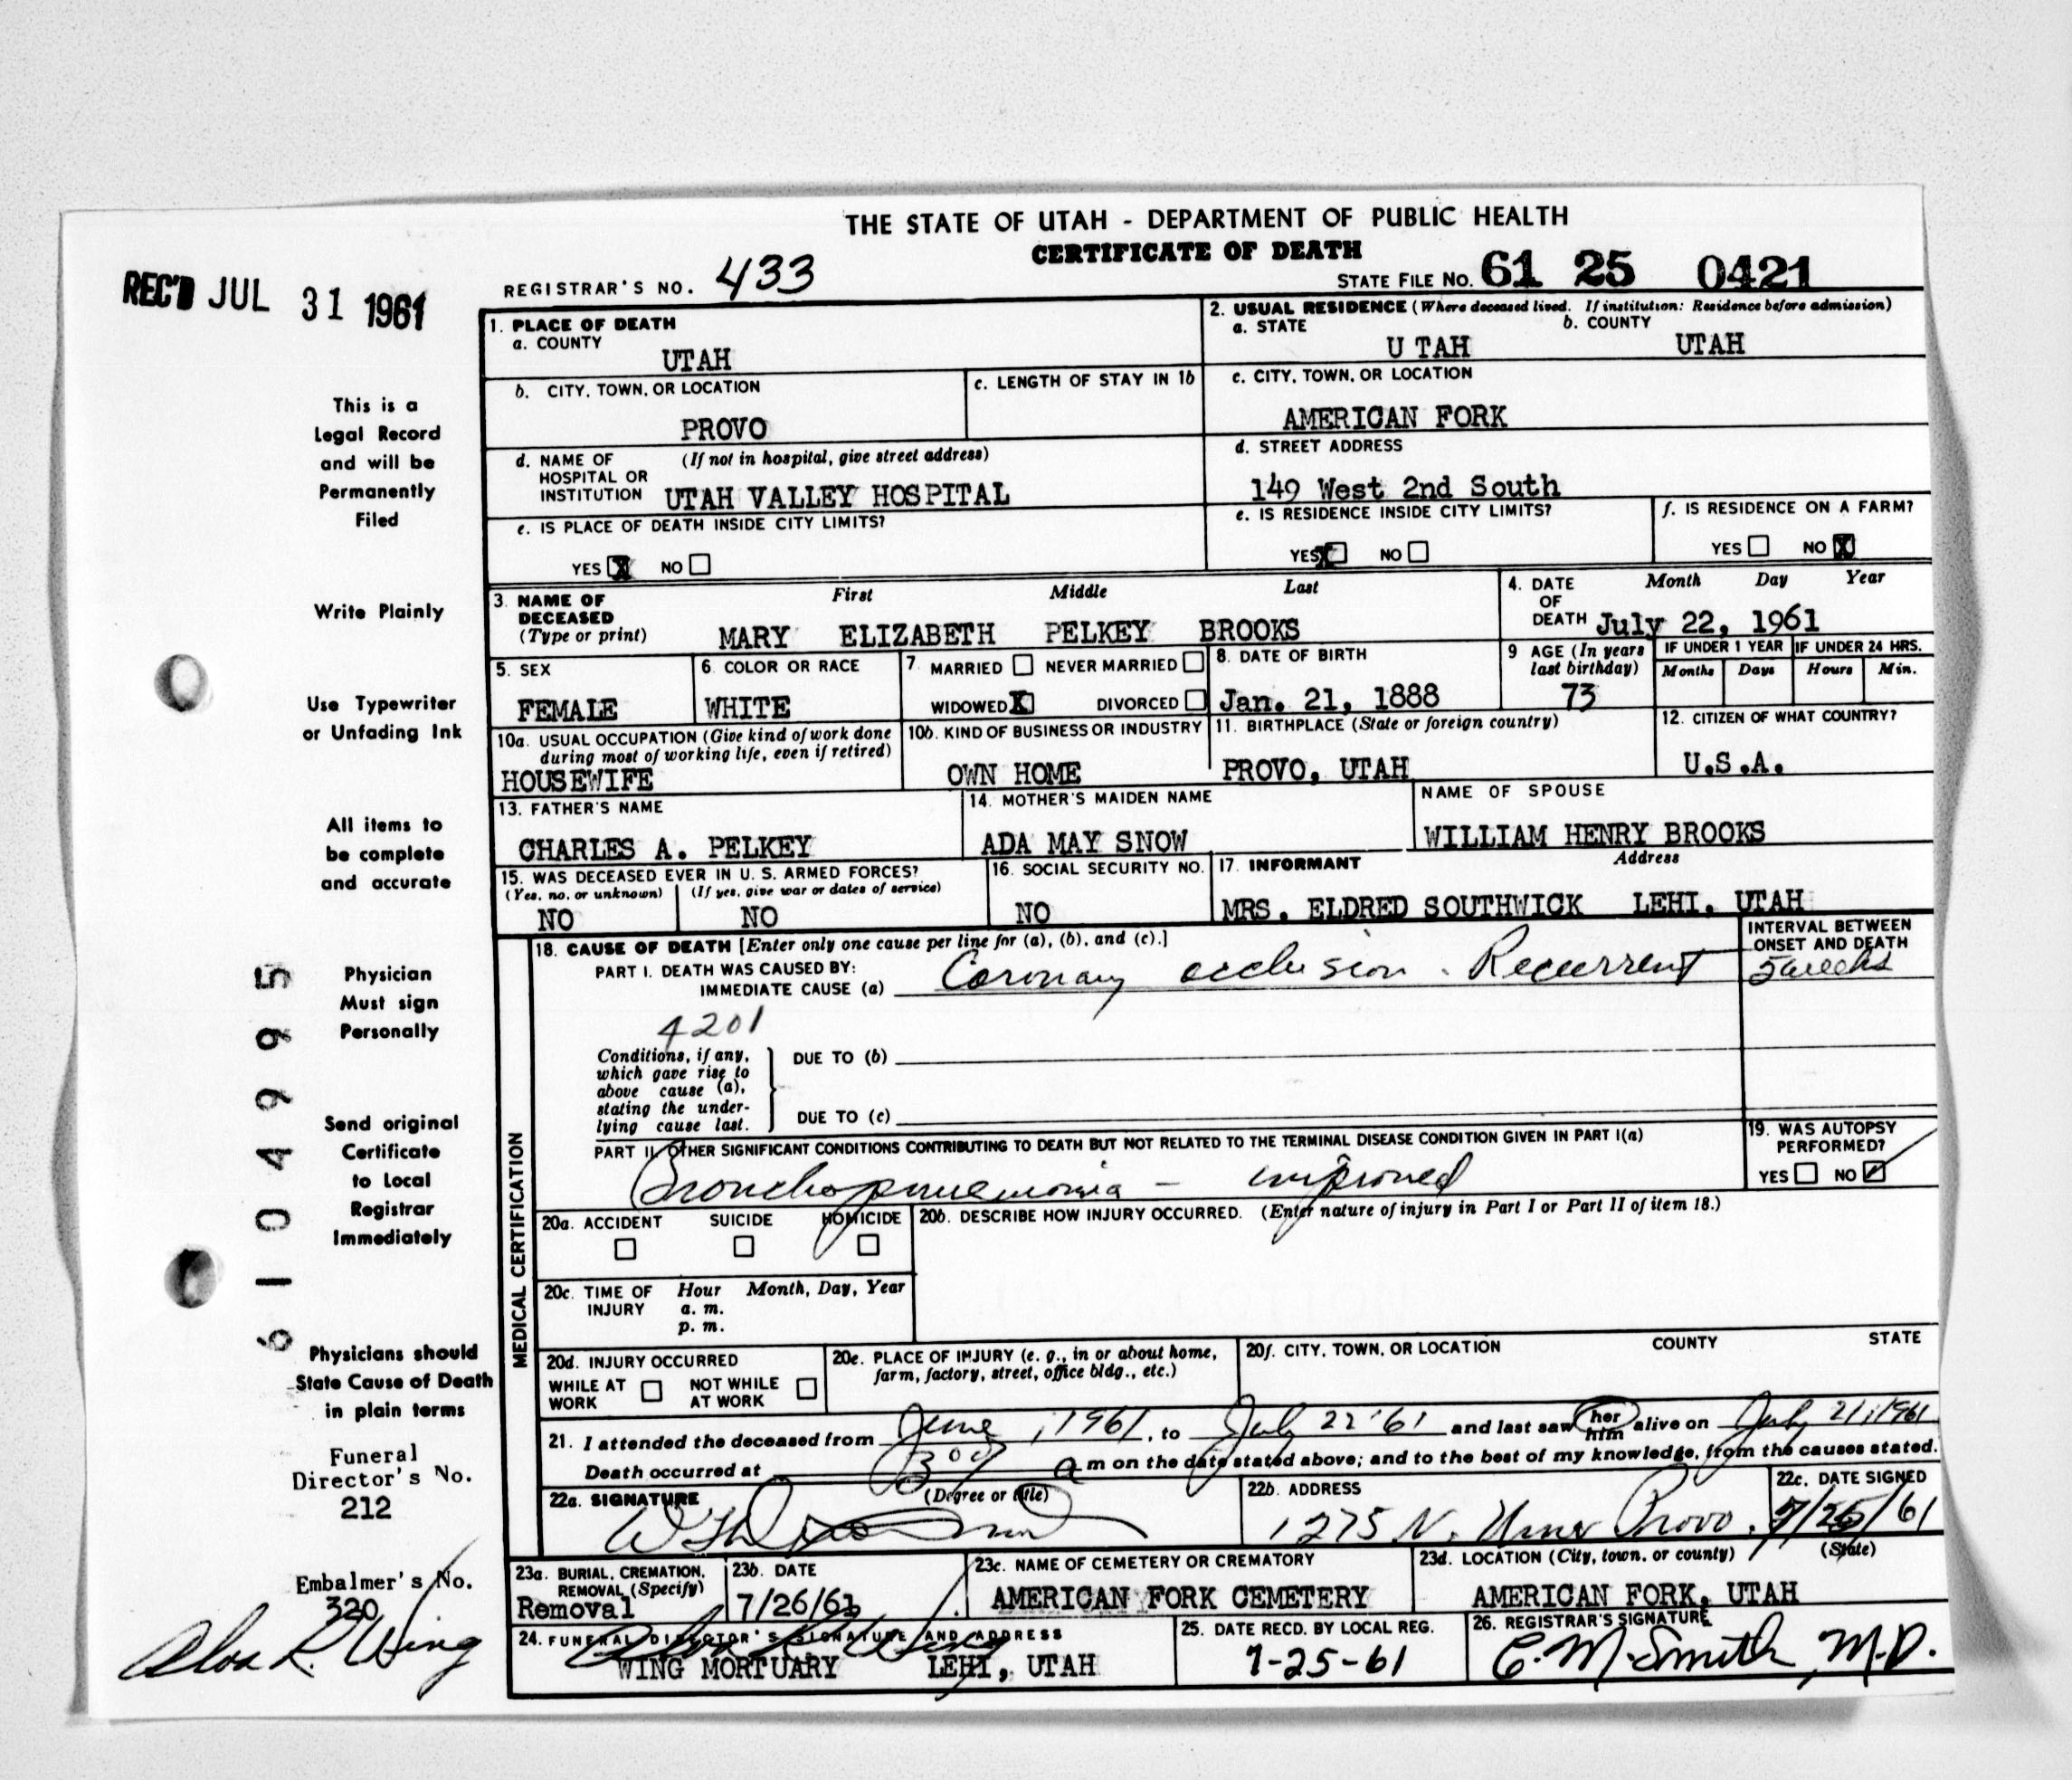 THE STATE OF UTAH - DEPARTMENT OF PUBLIC HEALTH
CERTIFICATE OF DEATH
REC'D JUL 31 1961
REGISTRAR'S NO. 433
STATE FILE NO. 61 25 0421
1. PLACE OF DEATH
a. COUNTY
UTAH
2. USUAL RESIDENCE (Where deceased lived. If institution: Residence before admission)
a. STATE b. COUNTY
U TAH UTAH
b. CITY, TOWN, OR LOCATION
PROVO
c. LENGTH OF STAY IN 1b
c. CITY, TOWN, OR LOCATION
AMERICAN FORK
d. NAME OF (If not in hospital, give street address)
HOSPITAL OR
INSTITUTION UTAH VALLEY HOSPITAL
d. STREET ADDRESS
149 West 2nd South
e. IS PLACE OF DEATH INSIDE CITY LIMITS?
YES X NO
e. IS RESIDENCE INSIDE CITY LIMITS?
YES X NO
f. IS RESIDENCE ON A FARM?
YES NO X
3. NAME OF DECEASED (Type or print)
First Middle Last
MARY ELIZABETH PELKEY BROOKS
4. DATE OF DEATH Month Day Year
July 22, 1961
5. SEX
FEMALE
6. COLOR OR RACE
WHITE
7. MARRIED NEVER MARRIED
WIDOWED X DIVORCED
8. DATE OF BIRTH
Jan. 21, 1888
9 AGE (In years last birthday)
73
IF UNDER 1 YEAR IF UNDER 24 HRS.
Months Days Hours Min.
10a. USUAL OCCUPATION (Give kind of work done
during most of working life, even if retired)
HOUSEWIFE
10b. KIND OF BUSINESS OR INDUSTRY
OWN HOME
11. BIRTHPLACE (State or foreign country)
PROVO, UTAH
12. CITIZEN OF WHAT COUNTRY?
U.S.A.
13. FATHER'S NAME
CHARLES A. PELKEY
14. MOTHER'S MAIDEN NAME
ADA MAY SNOW
NAME OF SPOUSE
WILLIAM HENRY BROOKS
15. WAS DECEASED EVER IN U. S. ARMED FORCES?
(Yes, no, or unknown) (If yes, give war or dates of service)
NO NO
16. SOCIAL SECURITY NO.
NO
17. INFORMANT Address
MRS. ELDRED SOUTHWICK LEHI, UTAH
MEDICAL CERTIFICATION
18. CAUSE OF DEATH [Enter only one cause per line for (a), (b), and (c).]
PART I. DEATH WAS CAUSED BY:
IMMEDIATE CAUSE (a) Coronary occlusion. Recurrent
INTERVAL BETWEEN
ONSET AND DEATH
5 weeks
4201
Conditions, if any,
which gave rise to
above cause (a),
stating the under-
lying cause last.
DUE TO (b)
DUE TO (c)
PART II. OTHER SIGNIFICANT CONDITIONS CONTRIBUTING TO DEATH BUT NOT RELATED TO THE TERMINAL DISEASE CONDITION GIVEN IN PART I(a)
Bronchopneumonia - improved
19. WAS AUTOPSY
PERFORMED?
YES NO
20a. ACCIDENT SUICIDE HOMICIDE
20b. DESCRIBE HOW INJURY OCCURRED. (Enter nature of injury in Part I or Part II of item 18.)
20c. TIME OF INJURY Hour Month, Day, Year
a. m.
p. m.
20d. INJURY OCCURRED
WHILE AT WORK NOT WHILE AT WORK
20e. PLACE OF INJURY (e. g., in or about home,
farm, factory, street, office bldg., etc.)
20f. CITY, TOWN, OR LOCATION COUNTY STATE
21. I attended the deceased from June, 1961, to July 22 '61 and last saw her him alive on July 21, 1961
Death occurred at 3 a m on the date stated above; and to the best of my knowledge, from the causes stated.
22a. SIGNATURE (Degree or title)
22b. ADDRESS
1275 N. Provo.
22c. DATE SIGNED
7/25/61
23a. BURIAL, CREMATION,
REMOVAL (Specify)
Removal
23b. DATE
7/26/61
23c. NAME OF CEMETERY OR CREMATORY
AMERICAN FORK CEMETERY
23d. LOCATION (City, town, or county) (State)
AMERICAN FORK, UTAH
24. FUNERAL DIRECTOR'S SIGNATURE AND ADDRESS
WING MORTUARY LEHI, UTAH
25. DATE RECD. BY LOCAL REG.
7-25-61
26. REGISTRAR'S SIGNATURE
E.M. Smith, M.D.
This is a
Legal Record
and will be
Permanently
Filed
Write Plainly
Use Typewriter
or Unfading Ink
All items to
be complete
and accurate
Physician
Must sign
Personally
Send original
Certificate
to Local
Registrar
Immediately
Physicians should
State Cause of Death
in plain terms
Funeral
Director's No.
212
Embalmer's No.
320
Alva R. Wing
6104995